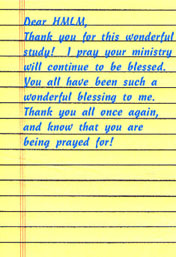 Dear HMLM,
Thank you for this wonderful
study! I pray your ministry
will continue to be blessed.
You all have been such a
wonderful blessing to me.
Thank you all once again,
and know that you are
being prayed for!